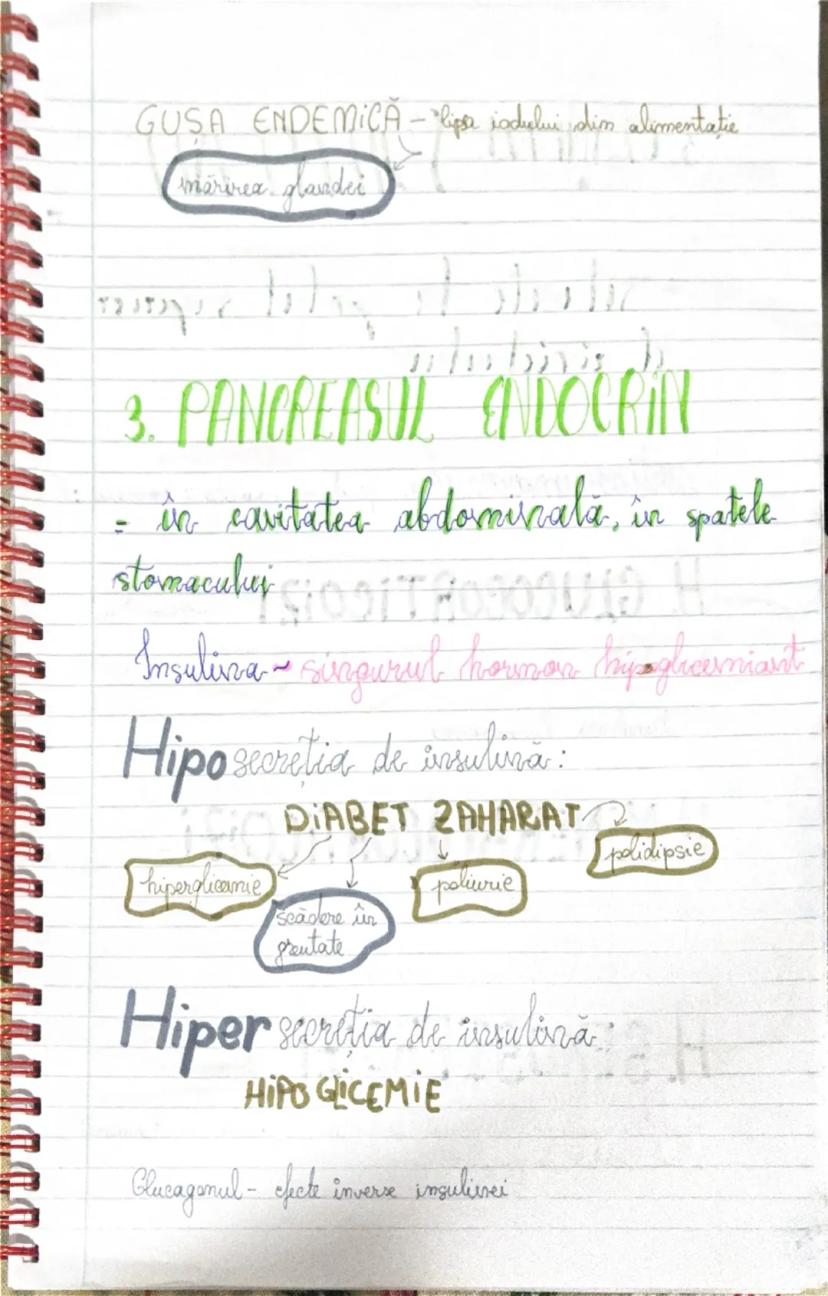 GUȘA ENDEMICĂ - lipsa iodului din alimentație
mărirea glandei
3. PANCREASUL ENDOCRIN
= în cavitatea abdominală, în spatele
stomacului
Insulina - singurul hormon hipoglicemiant
Hiposecreția de insulină:
DIABET ZAHARAT
polidipsie
hiperglicemie
poliurie
scădere în
greutate
Hipersecreția de insulină:
HIPOGLICEMIE
Glucagonul - efecte inverse insulinei